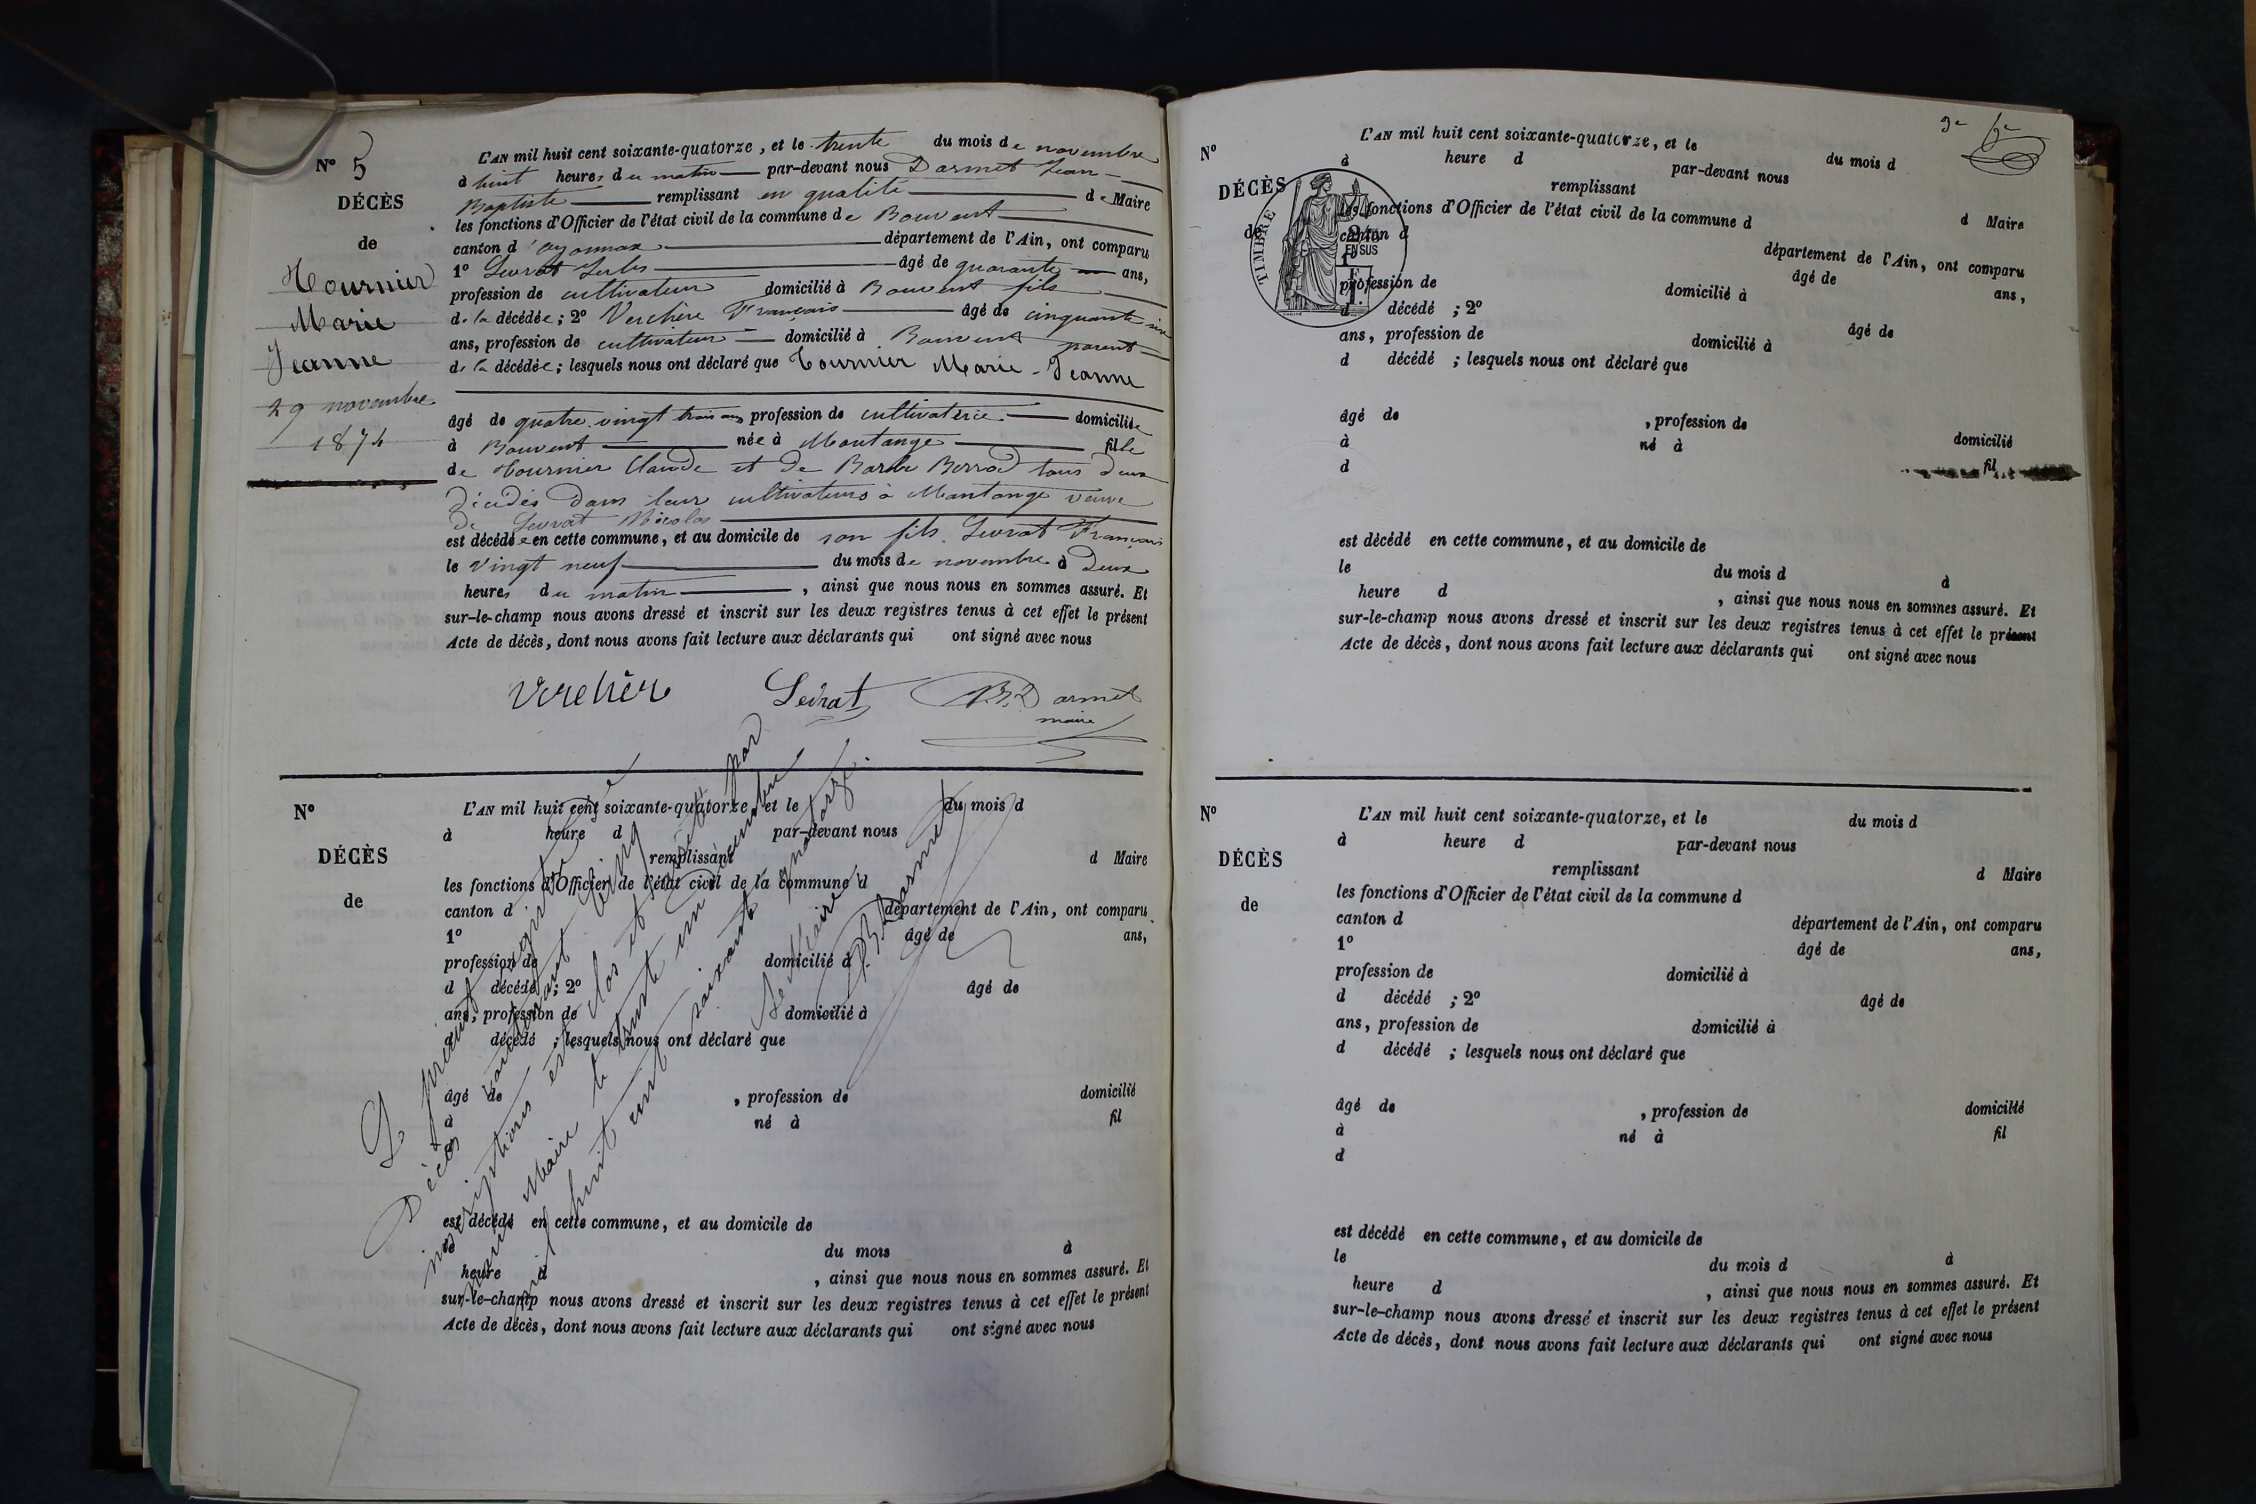 N° 5
DÉCÈS
de
Tournier
Marie
Jeanne
29 novembre
1874
L'AN mil huit cent soixante-quatorze, et le trente du mois de novembre
à huit heures du matin par-devant nous Darmet Jean-
Baptiste remplissant en qualité de Maire
les fonctions d'Officier de l'état civil de la commune de Bouvent
canton d'oyonnax département de l'Ain, ont comparu
1° Levrat âgé de quarante ans,
profession de cultivateur domicilié à Bouvent fils
de la décédée; 2° Verchère François âgé de cinquante six
ans, profession de cultivateur domicilié à Bouvent parent
de la décédée; lesquels nous ont déclaré que Tournier Marie-Jeanne
âgé de quatre vingt trois ans profession de cultivatrice domiciliée
à Bouvent née à Montange fille
de Tournier Claude et de Barbe Berrod tous deux
décédés dans leur cultivateurs à Montange veuve
de Levrat Nicolas
est décédée en cette commune, et au domicile de son fils Levrat François
le vingt neuf du mois de novembre à deux
heures du matin, ainsi que nous nous en sommes assuré. Et
sur-le-champ nous avons dressé et inscrit sur les deux registres tenus à cet effet le présent
Acte de décès, dont nous avons fait lecture aux déclarants qui ont signé avec nous
Verchère Levrat J.B. Darmet
maire
N°
DÉCÈS
de
L'AN mil huit cent soixante-quatorze, et le du mois d
à heure d par-devant nous
remplissant d Maire
les fonctions d'Officier de l'état civil de la commune d
canton d département de l'Ain, ont comparu
1° âgé de ans,
profession de domicilié à
d décédé ; 2° âgé de
ans, profession de domicilié à
d décédé ; lesquels nous ont déclaré que
âgé de , profession de domicilié
à né à fil
d
est décédé en cette commune, et au domicile de
le du mois à
heure d , ainsi que nous nous en sommes assuré. Et
sur-le-champ nous avons dressé et inscrit sur les deux registres tenus à cet effet le présent
Acte de décès, dont nous avons fait lecture aux déclarants qui ont signé avec nous
Le présent registre de
Décès contenant cinq
inscriptions est clos et arrêté par
nous Maire le trente un décembre
mil huit cent soixante quatorze.
Le Maire
J.B. Darmet
3e fe
N°
DÉCÈS
de
TIMBRE
2/10
EN SUS
1 F.
L'AN mil huit cent soixante-quatorze, et le du mois d
à heure d par-devant nous
remplissant d Maire
les fonctions d'Officier de l'état civil de la commune d
canton d département de l'Ain, ont comparu
1° âgé de ans,
profession de domicilié à
d décédé ; 2° âgé de
ans, profession de domicilié à
d décédé ; lesquels nous ont déclaré que
âgé de , profession de domicilié
à né à fil
d
est décédé en cette commune, et au domicile de
le du mois d à
heure d , ainsi que nous nous en sommes assuré. Et
sur-le-champ nous avons dressé et inscrit sur les deux registres tenus à cet effet le présent
Acte de décès, dont nous avons fait lecture aux déclarants qui ont signé avec nous
N°
DÉCÈS
de
L'AN mil huit cent soixante-quatorze, et le du mois d
à heure d par-devant nous
remplissant d Maire
les fonctions d'Officier de l'état civil de la commune d
canton d département de l'Ain, ont comparu
1° âgé de ans,
profession de domicilié à
d décédé ; 2° âgé de
ans, profession de domicilié à
d décédé ; lesquels nous ont déclaré que
âgé de , profession de domicilié
à né à fil
d
est décédé en cette commune, et au domicile de
le du mois d à
heure d , ainsi que nous nous en sommes assuré. Et
sur-le-champ nous avons dressé et inscrit sur les deux registres tenus à cet effet le présent
Acte de décès, dont nous avons fait lecture aux déclarants qui ont signé avec nous